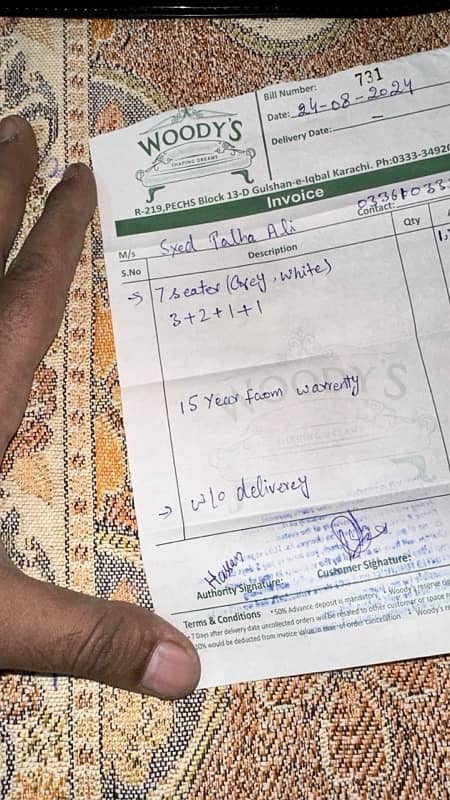 Bill Number: 731
Date: 24-08-2024
Delivery Date: -
WOODY'S
SHAPING DREAMS
R-219,PECHS Block 13-D Gulshan-e-Iqbal Karachi. Ph:0333-34920
Invoice
M/s Syed Talha Ali
Contact:
S.No Description Qty
7 seater (Grey, white)
3+2+1+1
15 Year foam warrenty
WOODY'S
→ w/o deliverey
Hassan
Authority Signature: Customer Signature:
Terms & Conditions • 50% Advance deposit is mandatory. • Woody's reserve
• 7 Days after delivery date uncollected orders will be resaled to other customer or space
10% would be deducted from invoice value in case of order cancellation. • Woody's